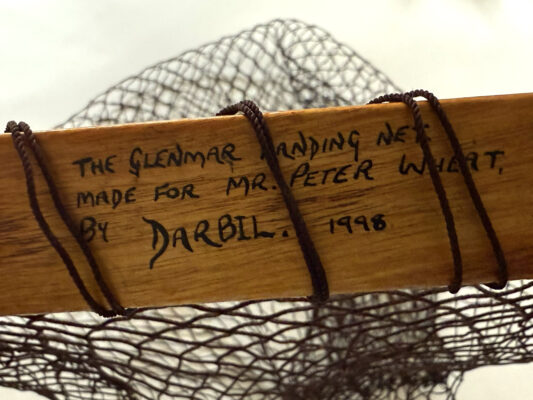 THE GLENMAR LANDING NET.
MADE FOR MR. PETER WHEAT,
BY DARBIL. 1998